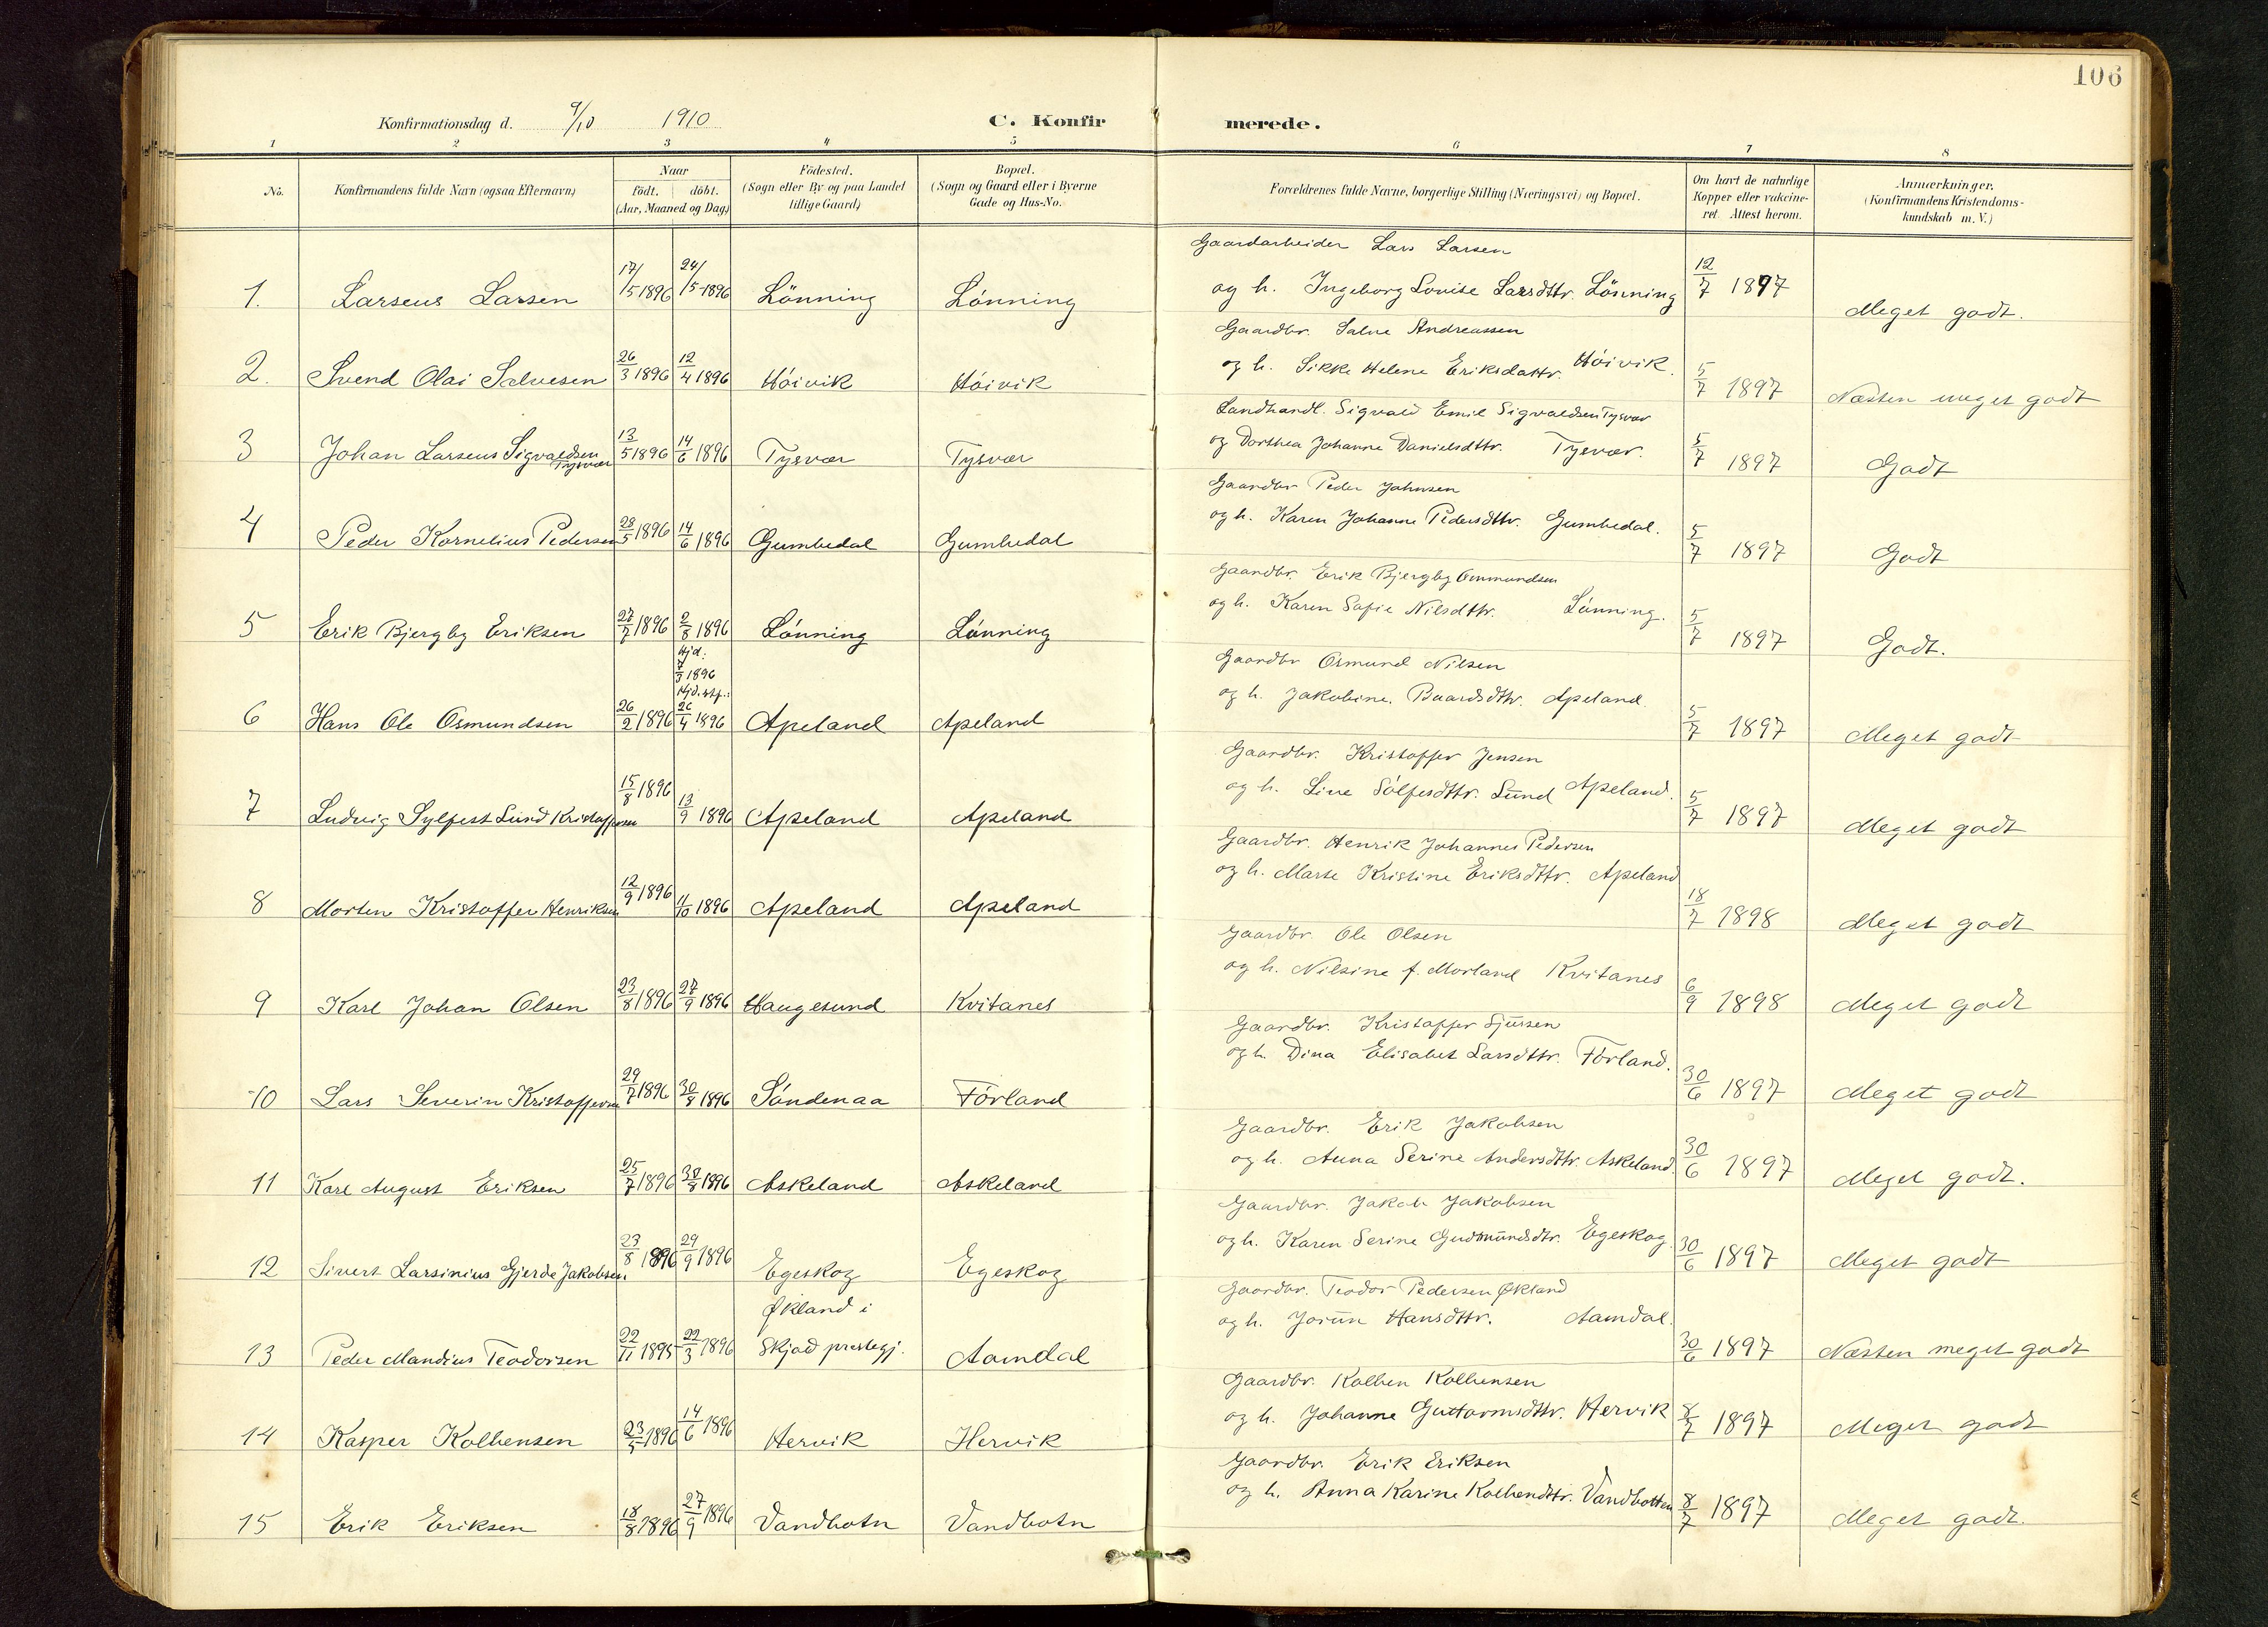 106
Konfirmationsdag d. 9/10 1910
C. Konfirmerede.
1 2 3 4 5 6 7 8
No. Konfirmandens fulde Navn (ogsaa Efternavn) Naar födt. döbt. (Aar, Maaned og Dag) Födested. (Sogn eller By og paa Landet tillige Gaard) Bopæl. (Sogn og Gaard eller i Byerne Gade og Hus-No. Forældrenes fulde Navne, borgerlige Stilling (Næringsvei) og Bopæl. Om havt de naturlige Kopper eller vakcineret. Attest herom. Anmærkninger. (Konfirmandens Kristendomskundskab m. V.)
Gaardarbeider Lars Larsen
1. Larseus Larsen 17/5 1896 24/5 1896 Lönning Lönning og h. Ingeborg Lovise Larsdttr. Lönning 12/7 1897 Meget godt.
Gaardbr. Salve Andreassen
2. Svend Olai Salvesen 26/3 1896 12/4 1896 Höivik Höivik og h. Sikke Helene Eriksdattr. Höivik. 5/7 1897 Næsten meget godt
Landhandl. Sigvald Emil Sigvaldsen Tysvær
3 Johan Larseus Sigvaldsen Tysvær 13/5 1896 14/6 1896 Tysvær Tysvær og Dorthea Johanne Danielsdttr. Tysvær. 5/7 1897 Godt
Gaardbr Peder Johnsen
4 Peder Kornelius Pedersen 28/5 1896 14/6 1896 Gumbedal Gumbedal og h. Karen Johanne Pedersdttr. Gumbedal. 5/7 1897 Godt
Gaardbr. Erik Bjergby Ommundsen
5 Erik Bjergby Eriksen 27/7 1896 2/8 1896 Lönning Lönning og h. Karen Sofie Nilsdttr. Lönning. 5/7 1897 Godt.
Hjd. 1896
Hjd. stf.:
Gaardbr Osmund Nilsen
6 Hans Ole Osmundsen 26/2 1896 26/4 1896 Apeland Apeland og h. Jakobine. Baardsdttr. Apeland. 5/7 1897 Meget godt
Gaardbr. Kristoffer Jensen
7 Ludvig Sylfest Lund Kristoffersen 15/8 1896 13/9 1896 Apeland Apeland og h. Line Sölfesdttr. Lund Apeland. 5/7 1897 Meget godt
Gaardbr. Henrik Johannes Pedersen
8 Morten Kristoffer Henriksen 12/9 1896 11/10 1896 Apeland Apeland og h. Marte Kristine Eriksdttr. Apeland 18/7 1898 Meget godt
Gaardbr. Ole Olsen
9 Karl Johan Olsen 23/8 1896 27/9 1896 Haugesund Kvitanes og h. Nilsine f. Morland Kvitanes 6/9 1898 Meget godt
Gaardbr. Kristoffer Sjursen
10 Lars Severin Kristoffersen 29/7 1896 30/8 1896 Söndenaa Förland og h. Dina Elisabet Larsdttr. Förland. 30/6 1897 Meget godt
Gaardbr. Erik Jakobsen
11 Karl August Eriksen 25/7 1896 30/8 1896 Askeland Askeland og h. Anna Serine Andersdttr. Askeland. 30/6 1897 Meget godt.
Gaardbr. Jakob Jakobsen
12 Sivert Larsinius Gjerde Jakobsen 23/8 1896 29/9 1896 Egeskog Egeskog og h. Karen Serine Gudmundsdtr. Egeskog. 30/6 1897 Meget godt
Gaardbr. Teodor Pedersen Økland
13 Peder Mandius Teodorsen 22/11 1895 22/3 1896 Økland i Skjold prestegj. Aamdal og h. Jorun Hansdttr. Aamdal. 30/6 1897 Næsten meget godt
Gaardbr. Kolben Kolbensen
14 Kasper Kolbensen 23/5 1896 14/6 1896 Hervik Hervik og h. Johanne Guttormsdttr. Hervik 8/7 1897 Meget godt
Gaardbr. Erik Eriksen
15 Erik Eriksen 18/8 1896 27/9 1896 Vandbotn Vandbotn og h. Anna Karine Kolbendttr. Vandbotten 8/7 1897 Meget godt.